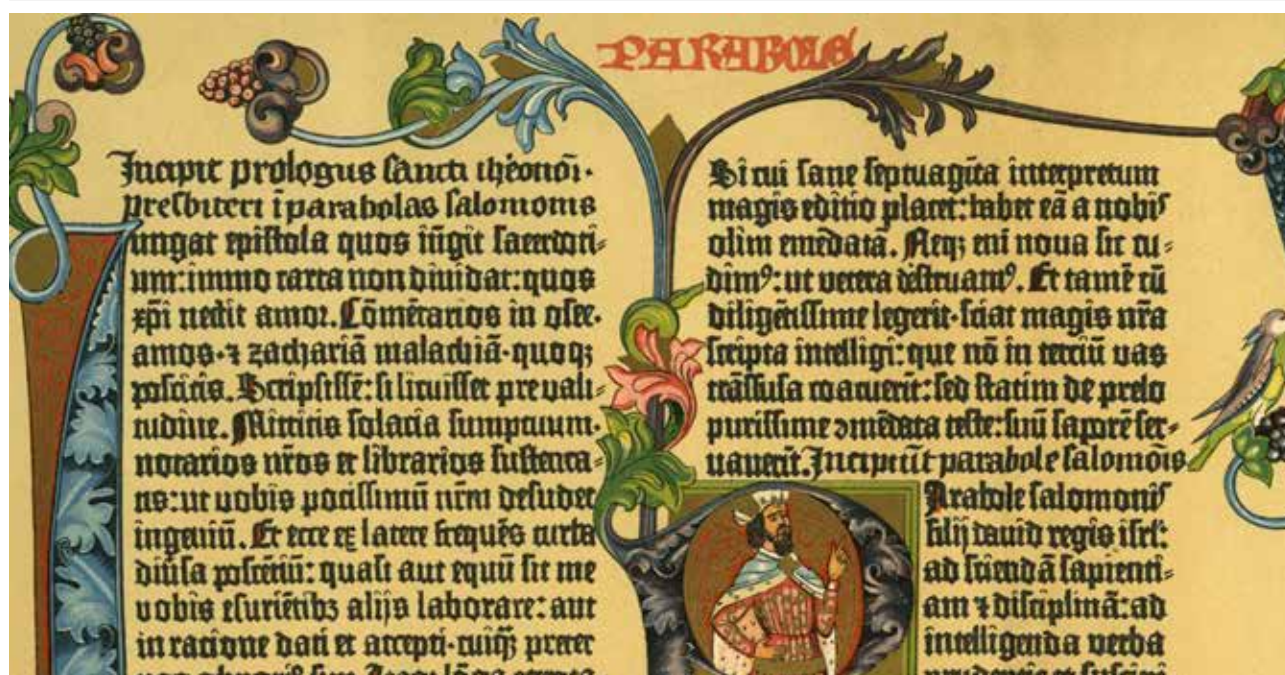 PARABOLE
Incipit prologus sancti
presbiteri i parabolas salomonis
Iungat epistola quos iūgit sacerdoti=
um: immo carta non diuidat: quos
xp̄i nectit amor. Cōmētarios in osee·
amos· ⁊ zachariā malachiā· quoq;
poscitis. Scripsissē: si licuisset pre uali=
tudine. Mittitis solacia sumptuum·
notarios nr̄os et librarios sustenta=
tis: ut uobis potissimū nr̄m desudet
ingeniū. Et ecce ex latere frequēs turba
diūsa poscētiū: quasi aut equū sit me
uobis esuriētibꝫ alijs laborare: aut
in ratione dati et accepti· cuiq̄ꝫ preter
Si cui sane septuagīta interpretum
magis editio placet: habet eā a nobis
olim emēdatā. Neq; eni noua sic cu=
dimꝰ: ut vetera destruamꝰ. Et tamē cū
diligētissime legerit· sciat magis nr̄a
scripta intelligi: que nō in terciū uas
trāssusa coacuerīt: sed statim de prelo
purissime ꝯmēdata teste: suū saporē ser=
uauerīt. Incipiūt parabole salomōis
Parabole salomonis
filij dauid regis isrl̄:
ad sciendā sapienti=
am ⁊ disciplinā: ad
intelligenda verba